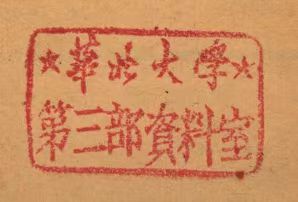 ★華北大學★
第三部資料室